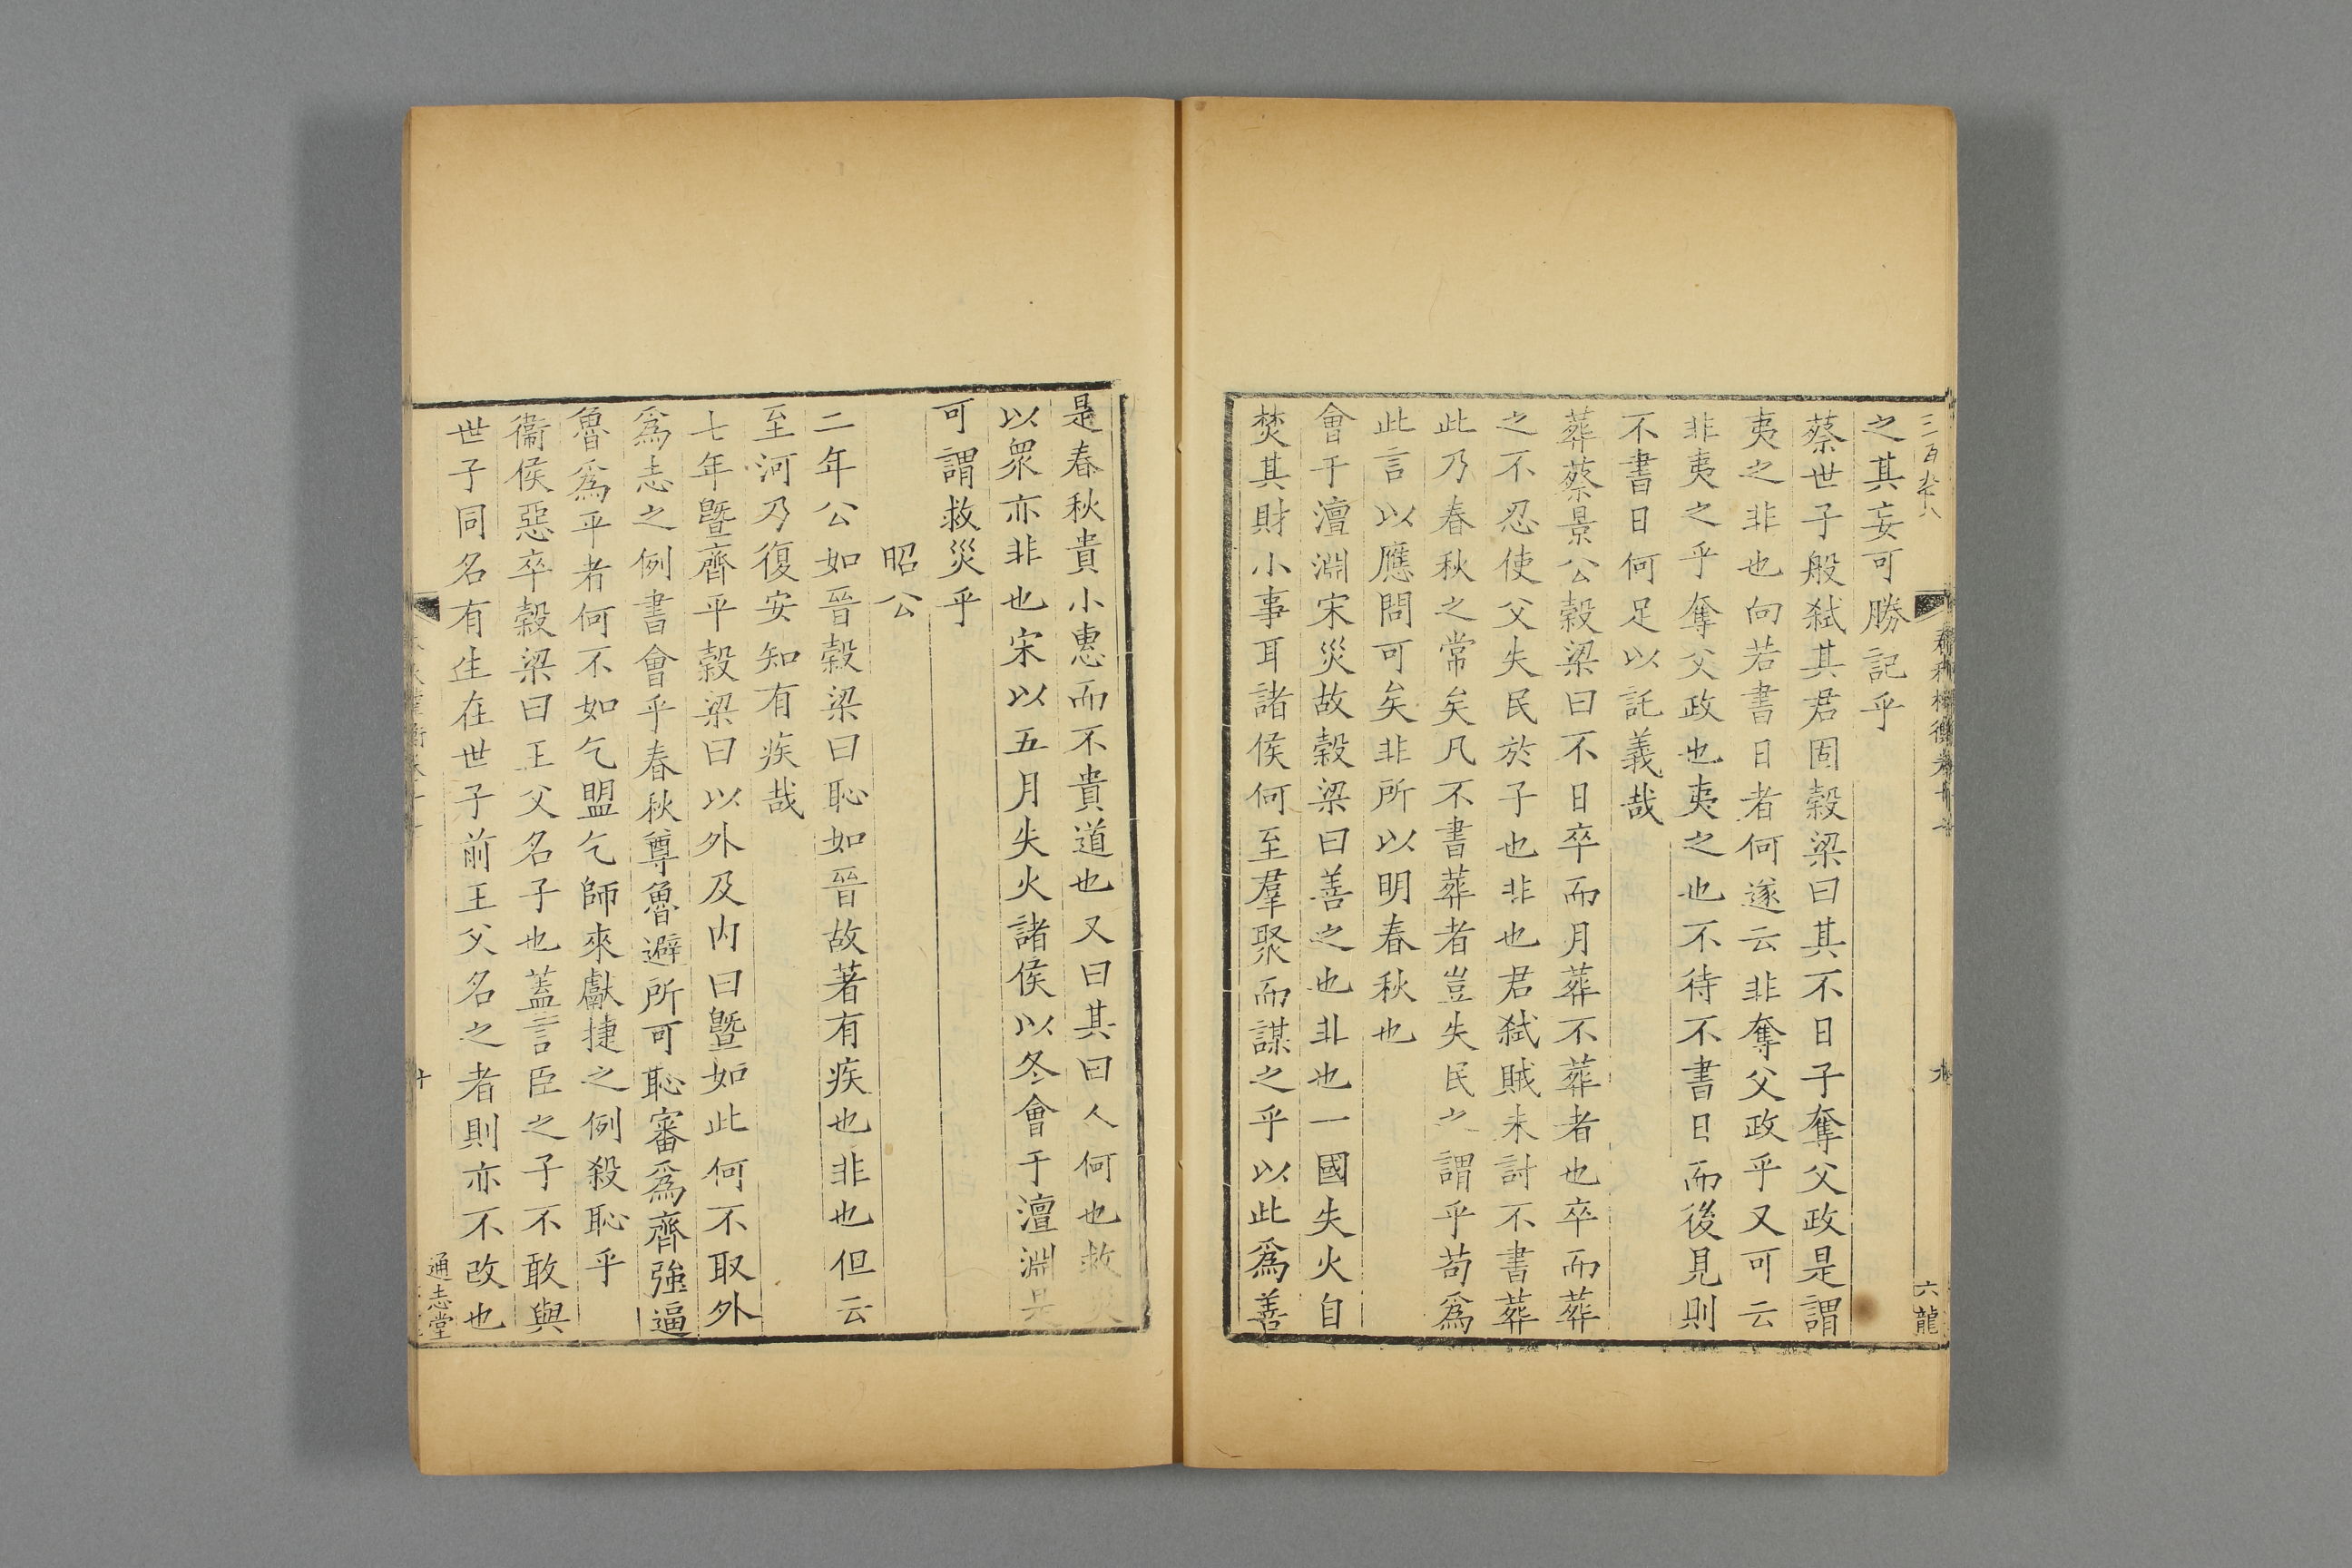 三百九十八
九
六龍
之其妄可勝記乎
蔡世子般弑其君固穀梁曰其不日子奪父政是謂
夷之非也向若書日者何遂云非奪父政乎又可云
非夷之乎奪父政也夷之也不待不書日而後見則
不書日何足以託義哉
葬蔡景公穀梁曰不日卒而月葬不葬者也卒而葬
之不忍使父失民於子也非也君弑賊未討不書葬
此乃春秋之常矣凡不書葬者豈失民之謂乎苟爲
此言以應問可矣非所以明春秋也
會于澶淵宋災故穀梁曰善之也非也一國失火自
焚其財小事耳諸侯何至羣聚而謀之乎以此爲善
是春秋貴小惠而不貴道也又曰其曰人何也救災
以衆亦非也宋以五月失火諸侯以冬會于澶淵是
可謂救災乎
昭公
二年公如晉穀梁曰恥如晉故著有疾也非也但云
至河乃復安知有疾哉
七年曁齊平穀梁曰以外及内曰曁如此何不取外
爲志之例書會乎春秋尊魯避所可恥審爲齊強逼
魯爲平者何不如乞盟乞師來獻捷之例殺恥乎
衞侯惡卒穀梁曰王父名子也蓋言臣之子不敢與
世子同名有生在世子前王父名之者則亦不改也
十
通志堂